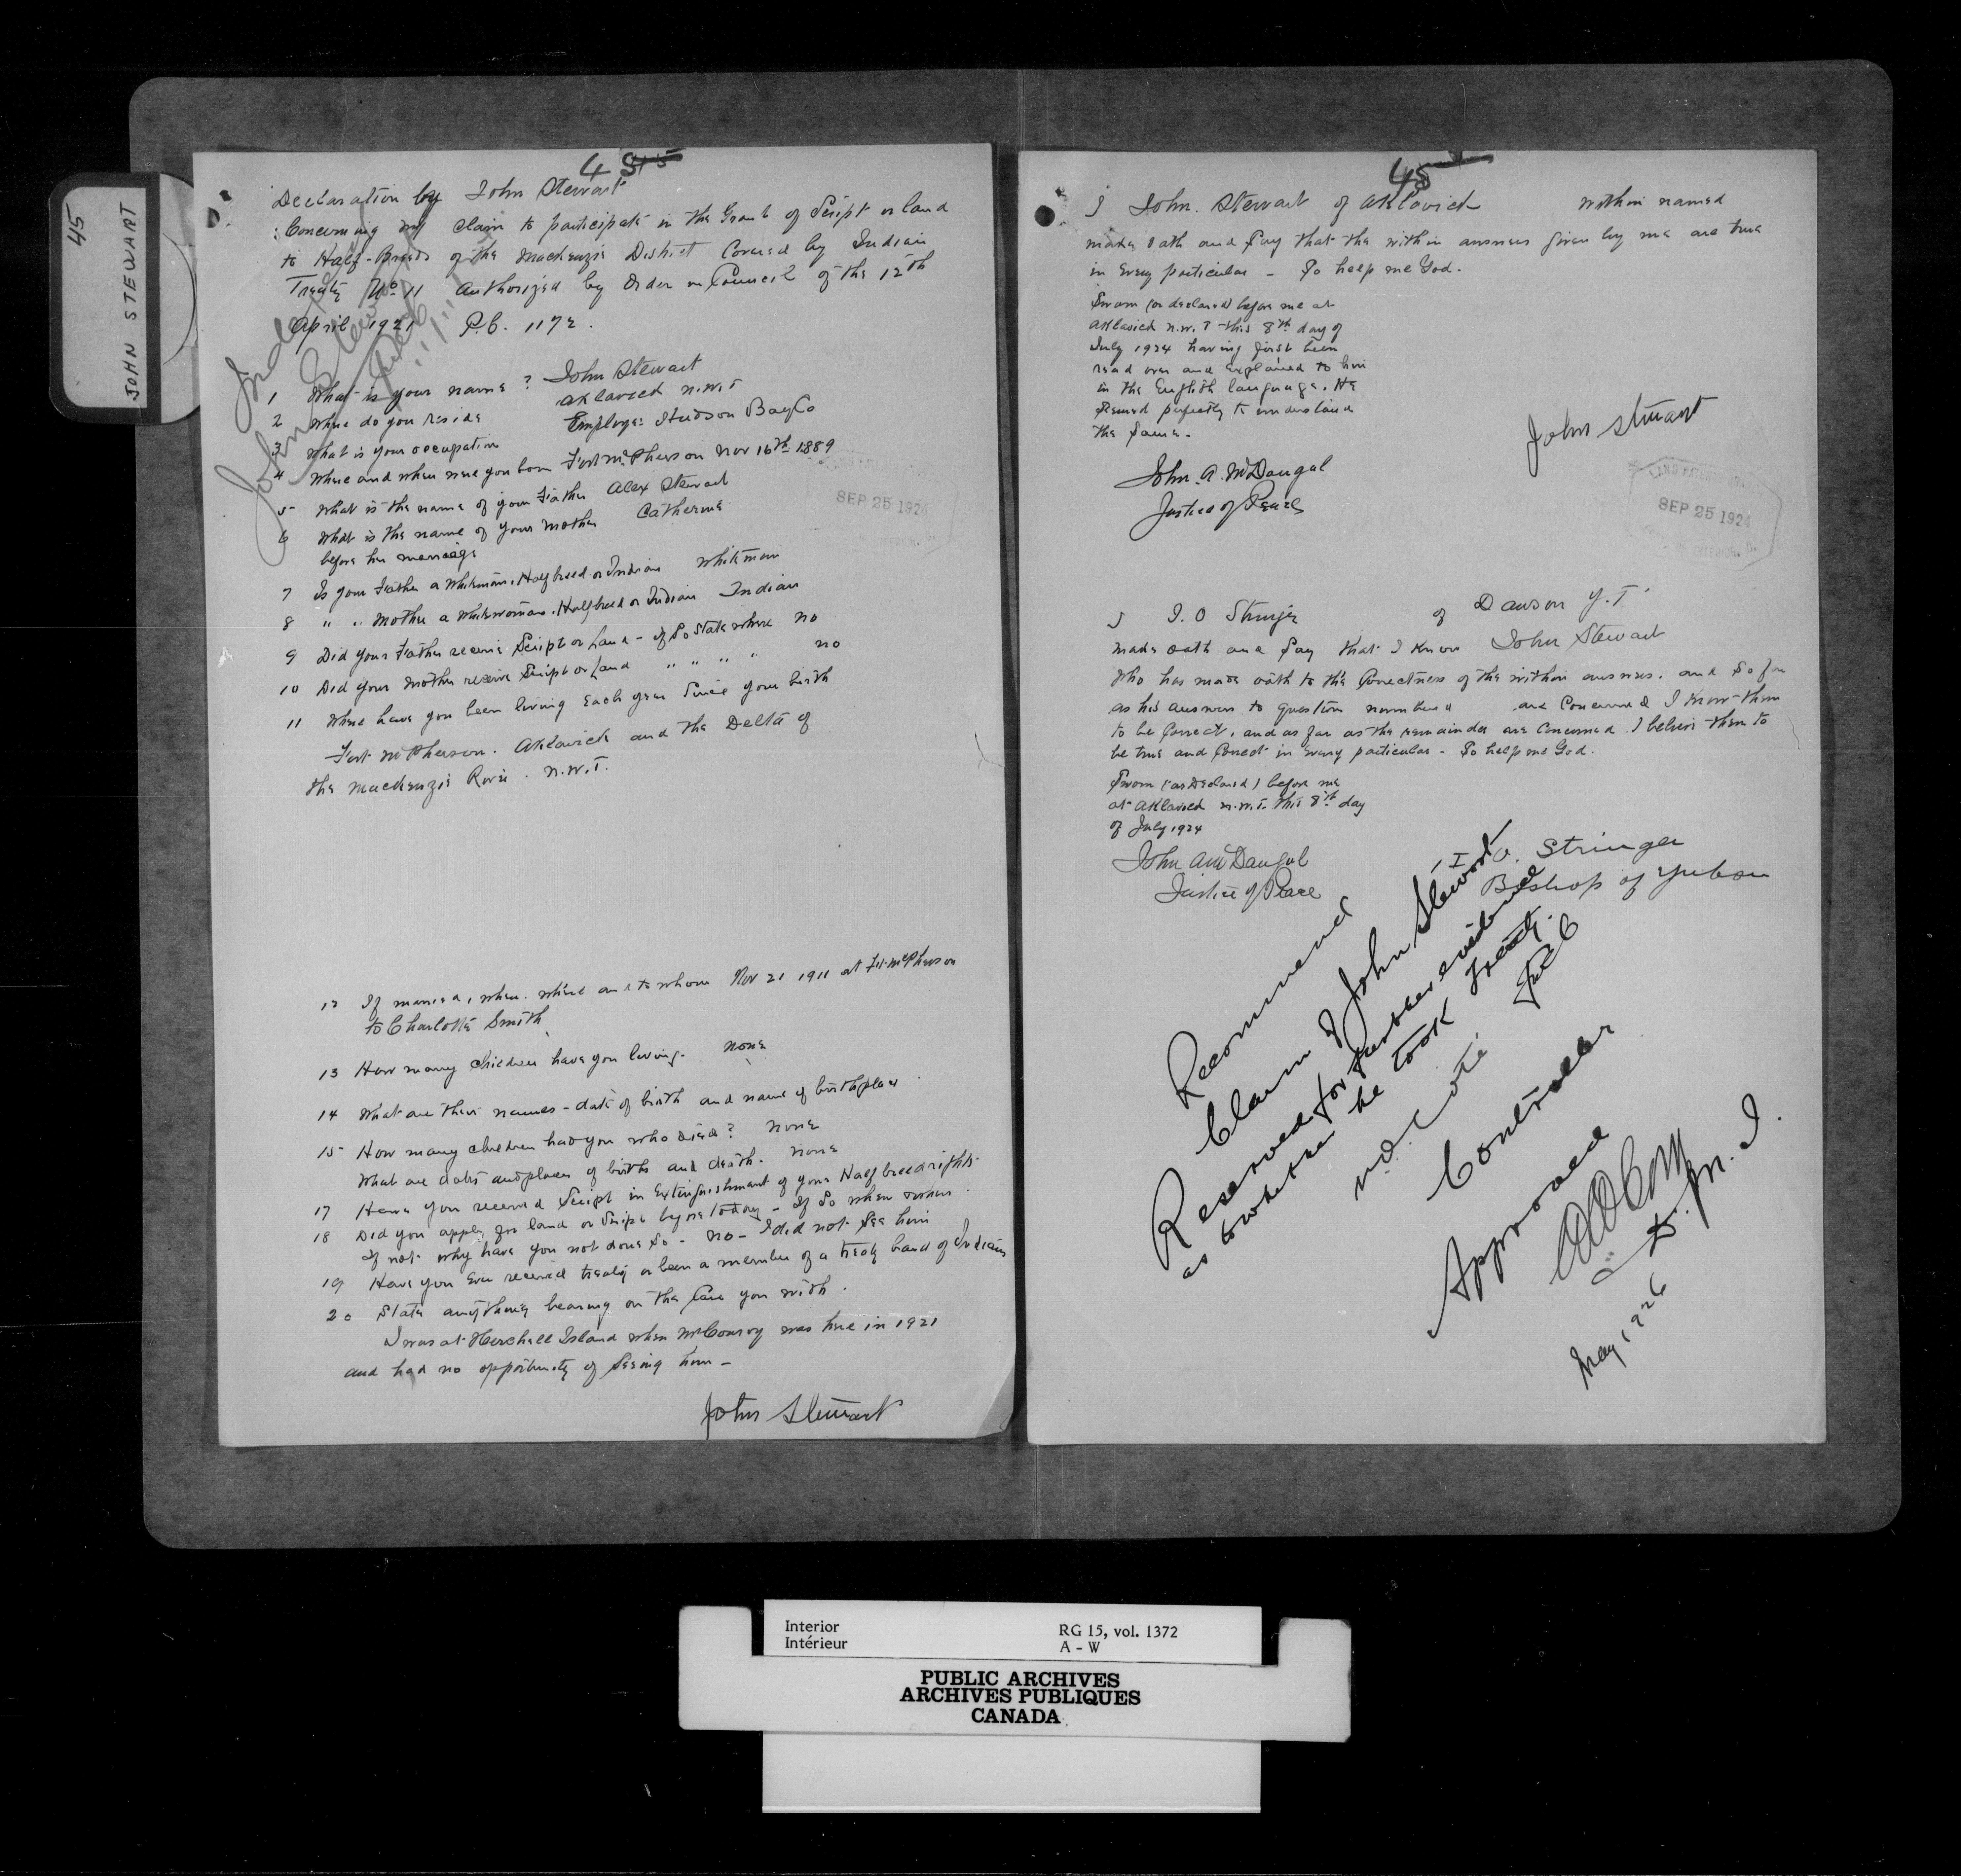 45
JOHN STEWART
45
Declaration by John Stewart
Concerning my claim to participate in the Grant of Script or land
to Half-Breeds of the Mackenzie District Covered by Indian
Treaty No 11 authorized by Order in Council of the 12th
April 1921 P.C. 1172.
John Stewart
1 What is your name? John Stewart
2 Where do you reside aklavick n.w.T
3 What is your occupation Employe: Hudson Bay Co
4 Where and when were you born Fort McPherson Nov 16th 1889
5 What is the name of your Father Alex Stewart
6 What is the name of your mother Catherine
before her marriage
7 Is your Father a Whiteman, Halfbreed or Indian Whiteman
8 " " Mother a Whitewoman. Halfbreed or Indian Indian
9 Did your Father receive Script or Land - if So State where no
10 Did your Mother receive Script or Land " " " " no
11 Where have you been living Each year Since your birth
Fort McPherson. Aklavick and the Delta of
the Mackenzie River. n.w.T.
12 If married, when. where and to whom Nov 21 1911 at Ft. McPherson
to Charlotte Smith
13 How many children have you living. none
14 What are their names - date of birth and name of birthplace
15 How many children had you who died? none
What are dates and places of births and death. none
17 Have you received Script in Extinguishment of your Halfbreed rights.
18 Did you apply for land or Script before today - If So when where.
If not why have you not done So - no - I did not See him
19 Have you Ever received treaty or been a member of a treaty band of Indians
20 State anything bearing on the Case you with.
I was at Herchell Island when McConroy was here in 1921
and had no opportunity of Seeing him -
John Stewart
SEP 25 1924
45
I John. Stewart of Aklavick within named
make Oath and Say that the within answers given by me are true
in Every particular - So help me God.
Sworn (or declared) before me at
Aklavick n.w.T this 8th day of
July 1924 having first been
read over and Explained to him
in the English language. He
Seemed perfectly to understand
the Same.
John Stewart
John. A. McDougal
Justice of Peace
SEP 25 1924
I I.O Stringer of Dawson Y.T.
make oath and Say that I know John Stewart
Who has made oath to the Correctness of the within answers. and So far
as his answers to question numbered are Concerned I know them
to be Correct, and as far as the remainder are Concerned. I believe them to
be true and Correct in Every particular - So help me God.
Sworn (or Declared) before me
at Aklavick n.w.T. this 8th day
of July 1924
I. O. Stringer
Bishop of Yukon
John A McDougal
Justice of Peace
Recommend
Claim of John Stewart
Reserved for further evidence
as to whether he took treaty.
Controller
Approved
D. M. I.
May 1926
Interior
Intérieur
RG 15, vol. 1372
A - W
PUBLIC ARCHIVES
ARCHIVES PUBLIQUES
CANADA